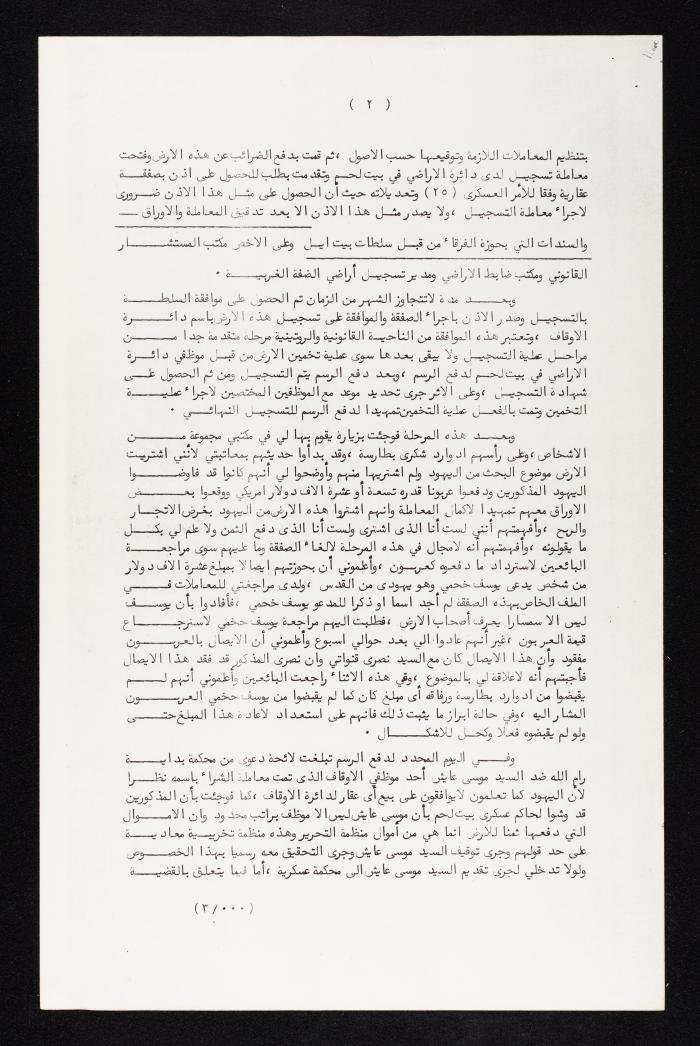 ( ٢ )
بتنظيم المعاملات اللازمة وتوقيعها حسب الاصول ،ثم قمت بدفع الضرائب عن هذه الارض وفتحت
معاملة تسجيل لدى دائرة الاراضي في بيت لحم وتقدمت بطلب للحصول على اذن بصفقة
عقارية وفقا للأمر العسكرى ( ٢٥ ) وتعديلاته حيث أن الحصول على مثل هذا الاذن ضرورى
لاجراء معاملة التسجيل ،ولا يصدر مثل هذا الاذن الا بعد تدقيق المعاملة والاوراق
والسندات التي بحوزة الفرقاء من قبل سلطات بيت ايل وعلى الاخص مكتب المستشار
القانوني ومكتب ضابط الاراضي ومدير تسجيل أراضي الضفة الغربية ٠
وبعد مدة لاتتجاوز الشهر من الزمان تم الحصول على موافقة السلطة
بالتسجيل وصدر الاذن باجراء الصفقة والموافقة على تسجيل هذه الارض باسم دائرة
الاوقاف ،وتعتبر هذه الموافقة من الناحية القانونية والروتينية مرحلة متقدمة جدا من
مراحل عملية التسجيل ولا يبقى بعدها سوى عملية تخمين الارض من قبل موظفي دائرة
الاراضي في بيت لحم لدفع الرسم ،وبعد دفع الرسم يتم التسجيل ومن ثم الحصول على
شهادة التسجيل ،وعلى الاثر جرى تحديد موعد مع الموظفين المختصين لاجراء عملية
التخمين وتمت بالفعل عملية التخمين تمهيدا لدفع الرسم للتسجيل النهائي ٠
وبعد هذه المرحلة فوجئت بزيارة يقوم بها لي في مكتبي مجموعة من
الاشخاص ،وعلى رأسهم ادوارد شكرى بطارسة ،وقد بدأوا حديثهم بمعاتبتي لأنني اشتريت
الارض موضوع البحث من اليهود ولم اشتريها منهم وأوضحوا لي أنهم كانوا قد فاوضوا
اليهود المذكورين ودفعوا عربونا قدره تسعة أو عشرة الاف دولار امريكي ووقعوا بعض
الاوراق معهم تمهيدا لاكمال المعاملة وانهم اشتروا هذه الارض من اليهود بغرض الاتجار
والربح ،وأفهمتهم أنني لست أنا الذى اشترى ولست أنا الذى دفع الثمن ولا علم لي بكل
ما يقولونه ،وأفهمتهم أنه لامجال في هذه المرحلة لالغاء الصفقة وما عليهم سوى مراجعة
البائعين لاسترداد ما دفعوه كعربون ،وأعلموني أن بحوزتهم ايصالا بمبلغ عشرة الاف دولار
من شخص يدعى يوسف خحمي وهو يهودى من القدس ،ولدى مراجعتي للمعاملات في
الملف الخاص بهذه الصفقة لم أجد اسما او ذكرا للمدعو يوسف خحمي ،فأفادوا بأن يوسف
ليس الا سمسارا يعرف أصحاب الارض ،فطلبت اليهم مراجعة يوسف خحمي لاسترجاع
قيمة العربون ،غير أنهم عادوا الي بعد حوالي اسبوع وأعلموني أن الايصال بالعربون
مفقود وأن هذا الايصال كان مع السيد نصرى قنواتي وان نصرى المذكور قد فقد هذا الايصال
فأجبتهم أنه لاعلاقة لي بالموضوع ،وفي هذه الاثناء راجعت البائعين وأعلموني أنهم لم
يقبضوا من ادوارد بطارسة ورفاقه أى مبلغ كان كما لم يقبضوا من يوسف خحمي العربون
المشار اليه ،وفي حالة ابراز ما يثبت ذلك فانهم على استعداد لاعادة هذا المبلغ حتى
ولو لم يقبضوه فعلا وكحل للاشكال ٠
وفي اليوم المحدد لدفع الرسم تبلغت لائحة دعوى من محكمة بداية
رام الله ضد السيد موسى عايش أحد موظفي الاوقاف الذى تمت معاملة الشراء باسمه نظرا
لأن اليهود كما تعلمون لايوافقون على بيع أى عقار لدائرة الاوقاف ،كما فوجئت بأن المذكورين
قد وشوا لحاكم عسكرى بيت لحم بأن موسى عايش ليس الا موظف براتب محدود وان الاموال
التي دفعها ثمنا للارض انما هي من أموال منظمة التحرير وهذه منظمة تخريبية معادية
على حد قولهم وجرى توقيف السيد موسى عايش وجرى التحقيق معه رسميا بهذا الخصوص
ولولا تدخلي لجرى تقديم السيد موسى عايش الى محكمة عسكرية ،أما فيما يتعلق بالقضية
( ٣/٠٠٠ )